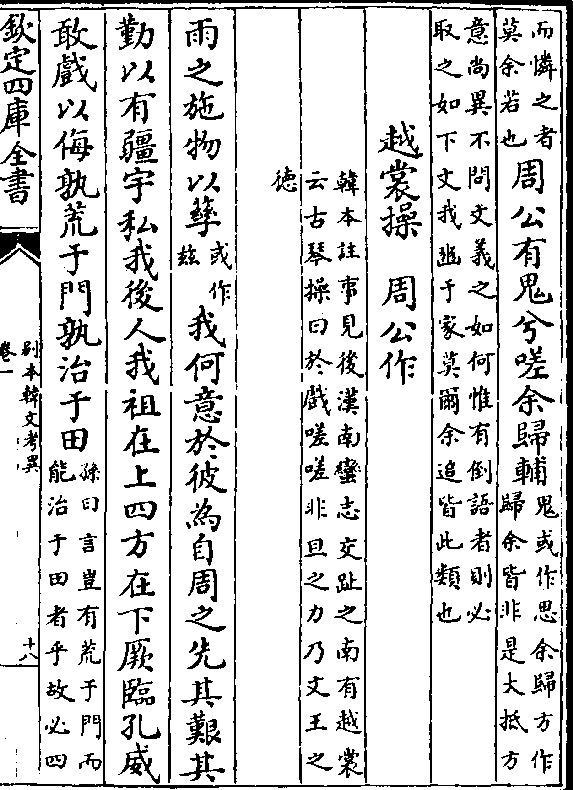 而憐之者
莫余若也
周公有鬼兮嗟余歸輔
鬼或作思余歸方作
歸余皆非是大抵方
意尚異不問文義之如何惟有倒語者則必
取之如下文我巡于家莫爾余追皆此類也
越裳操 周公作
韓本註事見後漢南蠻志交趾之南有越裳
云古琴操曰於戲嗟嗟非旦之力乃文王之
德
雨之施物以孳
或作
玆
我何意於彼為自周之先其艱其
勤以有疆宇私我後人我祖在上四方在下厥臨孔威
敢戲以侮孰荒于門孰治于田
孫曰言豈有荒于門而
能治于田者乎故必四
欽定四庫全書
別本韓文考異
卷一
十八